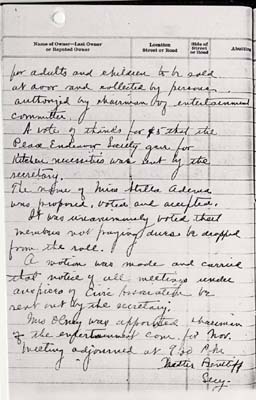 Name of Owner—Last Owner or Reputed Owner
Location Street or Road
Side of Street or Road
for adults and children to be sold
at door and collected by persons
authorized by chairman of entertainment
committee.
A vote of thanks for $5 that the
Peace Endeavor Society gave for
Kitchen necessities was sent by the
secretary.
The name of Miss Stella
was proposed, voted and accepted.
It was unanimously voted that
members not paying dues be dropped
from the roll.
A motion was made and carried
that notice of all meetings under
auspices of Civic Association be
sent out by the secretary.
Mrs Olney was appointed chairman
of the entertainment com. for Nov.
Meeting adjourned at 9.30 P.M.
Secy.